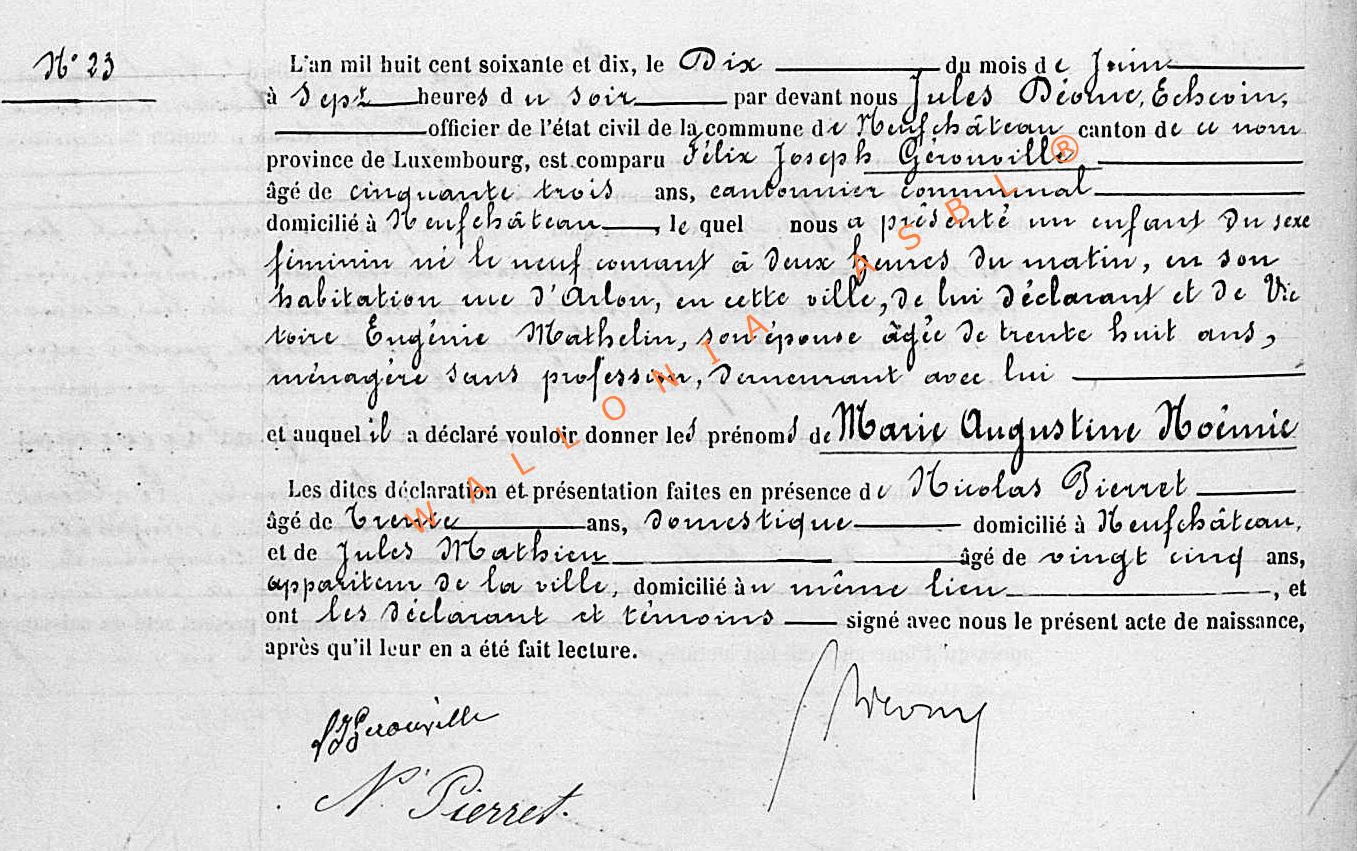 N° 23
L'an mil huit cent soixante et dix, le Dix du mois de Juin
à Sept heures du soir par devant nous Jules Déome, Echevin,
officier de l'état civil de la commune de Neufchâteau canton de ce nom
province de Luxembourg, est comparu Félix Joseph Gérouville
âgé de cinquante trois ans, cantonnier communal
domicilié à Neufchâteau, le quel nous a présenté un enfant du sexe
féminin né le neuf courant à deux heures du matin, en son
habitation rue d'Arlon, en cette ville, de lui déclarant et de Vic
toire Eugénie Mathelin, son épouse âgée de trente huit ans,
ménagère sans profession, demeurant avec lui
et auquel il a déclaré vouloir donner les prénoms de Marie Augustine Noëmie
Les dites déclaration et présentation faites en présence de Nicolas Pierret
âgé de trente ans, domestique domicilié à Neufchâteau,
et de Jules Mathieu âgé de vingt cinq ans,
appariteur de la ville, domicilié au même lieu, et
ont les déclarant et témoins signé avec nous le présent acte de naissance,
après qu'il leur en a été fait lecture.
Gerouville
N. Pierret.
WALLONIA ASBL ®